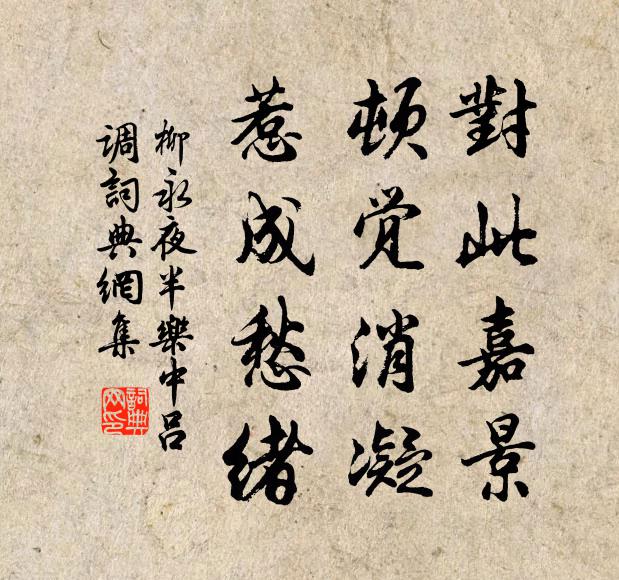 對此嘉景
頓觉消凝
惹成愁緒
柳永夜半樂中吕
调詞典網集
詞典
网印